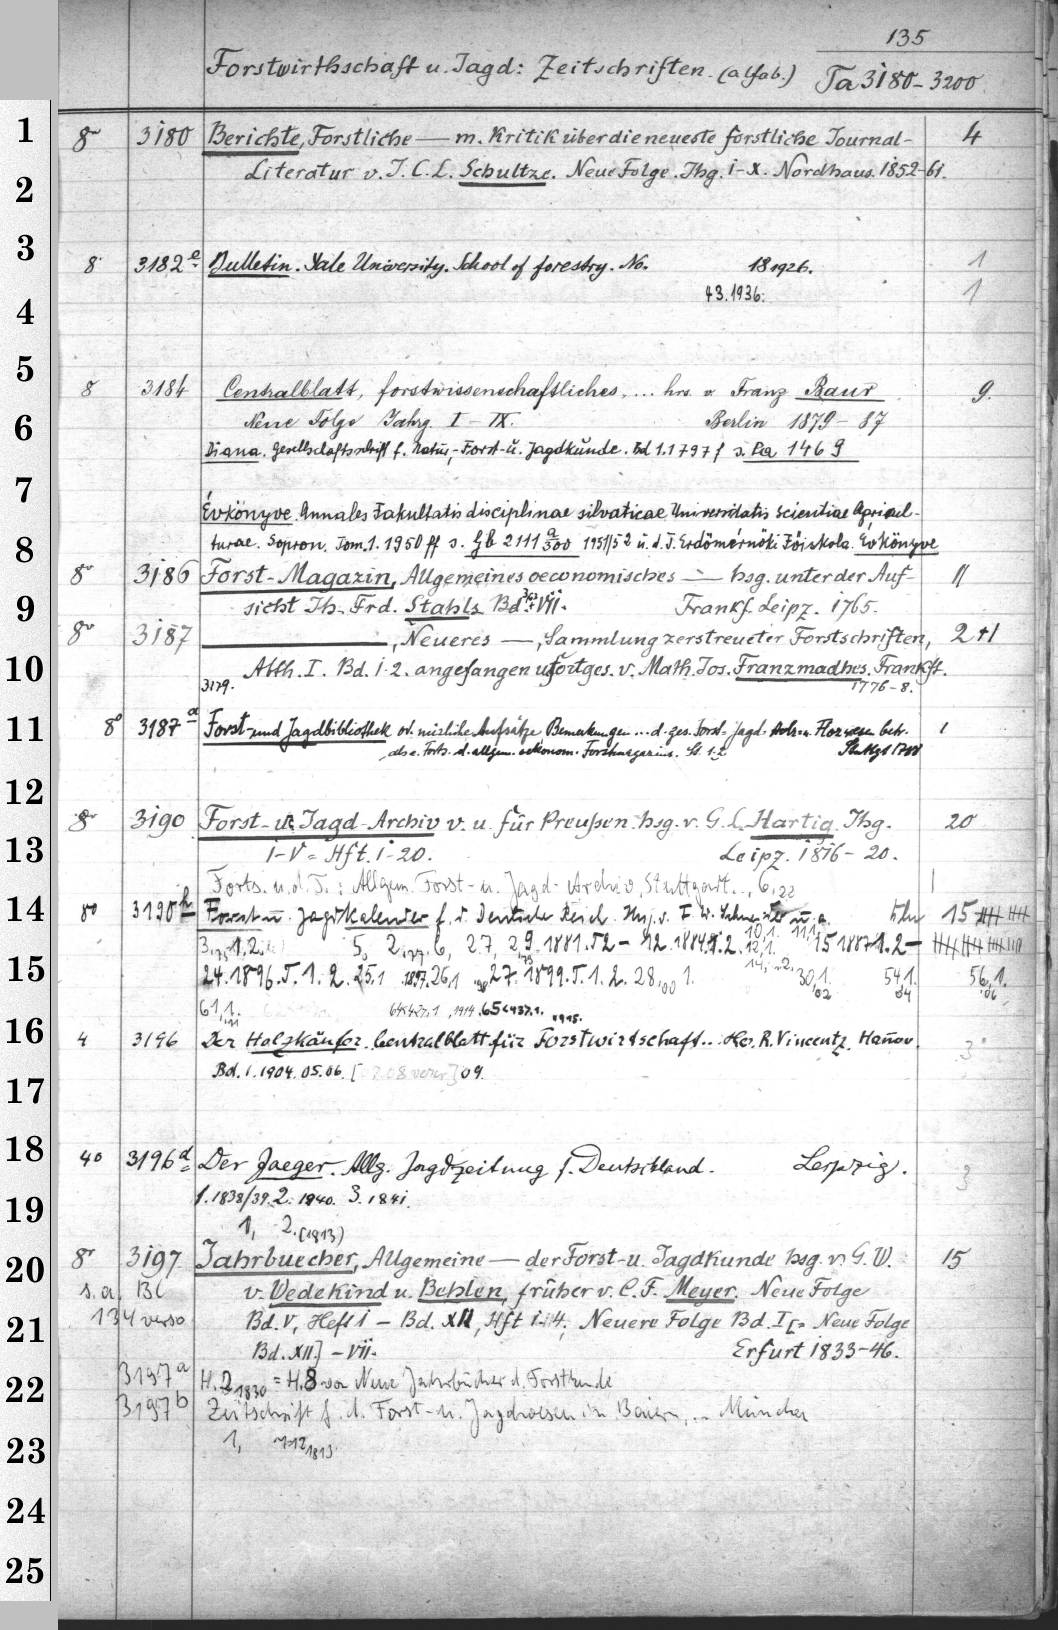 135
Forstwirthschaft u. Jagd: Zeitschriften. (alfab.) Ta 3180-3200
1 8° 3180 Berichte, Forstliche — m. Kritik über die neueste forstliche Journal- 4
2 Literatur v. J. C. L. Schultze. Neue Folge. Jhg. I-X. Nordhaus. 1852-61.
3 8° 3182a Bulletin. Yale University. School of forestry. No. 18 1926. 1
4 43. 1936. 1
5 8 3184 Centralblatt, forstwissenschaftliches, ... hrs. v. Franz Baur 9.
6 Neue Folge Jahrg. I - IX. Berlin 1879-87
Diana. Gesellschaftsschrift f. Natur-, Forst- u. Jagdkunde. Bd 1. 1797 f s. Pa 1469
7 Évkönyve Annales Fakultatis disciplinae silvaticae Universitatis scientiae Agricul-
8 turae. Sopron. Tom. 1. 1950 ff s. Gb 2111 a/500 1951/52 u. d. T. Erdömérnöki Föiskola. Évkönyve
8° 3186 Forst-Magazin, Allgemeines oeconomisches — hsg. unter der Auf- 11
9 sicht Jh. Frd. Stahls Bd. VII. Frankf. Leipz. 1765.
8° 3187 —, Neueres —, Sammlung zerstreueter Forstschriften, 2+1
10 Abth. I. Bd. 1-2. angefangen u. fortges. v. Math. Jos. Franzmadhes. Frankft.
3179. 1776-8.
11 8° 3187a Forst- und Jagdbibliothek od. nützliche Aufsätze, Bemerkungen ... d. ges. Forst- Jagd- Holz- u. Flozwesen betr. 1
als Forts. d. allgem. oekonom. Forstmagazins. St. 1-2 Stuttgt 1788
12
8° 3190 Forst- u. Jagd-Archiv v. u. für Preußen hsg. v. G. L. Hartig. Jhg. 20
13 I-V = Hft. 1-20. Leipz. 1816-20.
Forts. u. d. T.: Allgem. Forst- u. Jagd-Archiv, Stuttgart.., 6,22 1
14 80 3190h Forst- u. Jagdkalender f. d. Deutsche Reich. v. F. W. u. a. 15
1881. T2 - 12. 1884 15 1887 1. 2 -
15 24. 1896. T. 1. 2. 25,1 1897. 26,1 27. 1899. T. 1. 2. 28,00 1. 30,1. 02 54,1. 04 56,1. 06
61,1. 1914. 65 1915.
16 4 3196 Der Holzkäufer. Centralblatt für Forstwirtschaft... Hr. R. Vincentz. Hannov. 3
Bd. 1. 1904. 05. 06. [ 08 ] 09.
17
18 40 3196a Der Jaeger. Allg. Jagdzeitung f. Deutschland. Leipzig. 3
1. 1838/39. 2. 1840. 3. 1841.
19 1, 2. (1813)
20 8° 3197 Jahrbuecher, Allgemeine — der Forst- u. Jagdkunde hsg. v. G. W. 15
s. a. Bl v. Wedekind u. Behlen, früher v. C. F. Meyer. Neue Folge
21 134 verso Bd. V, Heft 1 - Bd. XII, Hft 1-4. Neuere Folge Bd. I [= Neue Folge
Bd. XII] - VII. Erfurt 1833-46.
22 3197a H. 2 1830 = H. 8 von Neue Jahrbücher d. Forstkunde
3197b Zeitschrift f. d. Forst- u. Jagdwesen in Baiern, .. München
23 1, 7-12 1813.
24
25